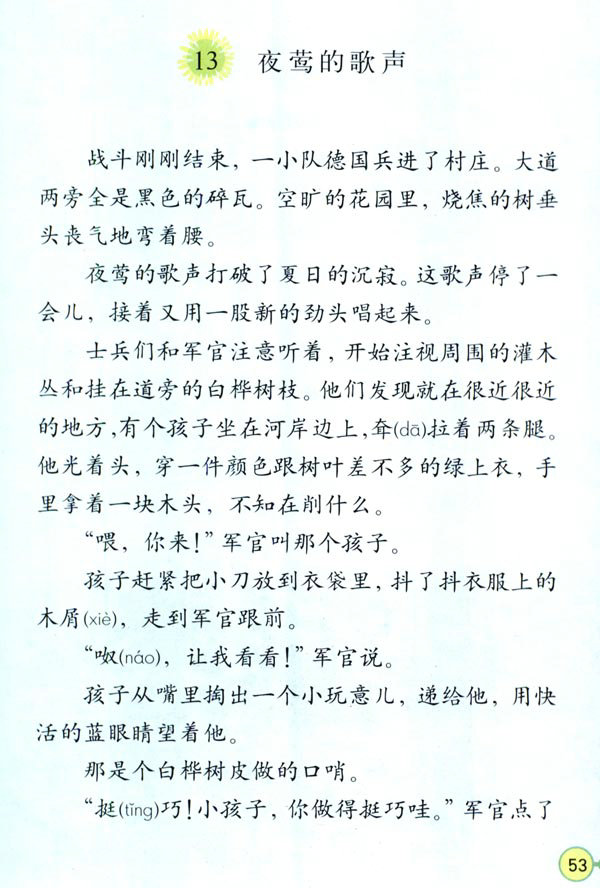 13 夜莺的歌声
战斗刚刚结束，一小队德国兵进了村庄。大道
两旁全是黑色的碎瓦。空旷的花园里，烧焦的树垂
头丧气地弯着腰。
夜莺的歌声打破了夏日的沉寂。这歌声停了一
会儿，接着又用一股新的劲头唱起来。
士兵们和军官注意听着，开始注视周围的灌木
丛和挂在道旁的白桦树枝。他们发现就在很近很近
的地方，有个孩子坐在河岸边上，耷(dā)拉着两条腿。
他光着头，穿一件颜色跟树叶差不多的绿上衣，手
里拿着一块木头，不知在削什么。
“喂，你来！”军官叫那个孩子。
孩子赶紧把小刀放到衣袋里，抖了抖衣服上的
木屑(xiè)，走到军官跟前。
“呶(náo)，让我看看！”军官说。
孩子从嘴里掏出一个小玩意儿，递给他，用快
活的蓝眼睛望着他。
那是个白桦树皮做的口哨。
“挺(tǐng)巧！小孩子，你做得挺巧哇。”军官点了
53